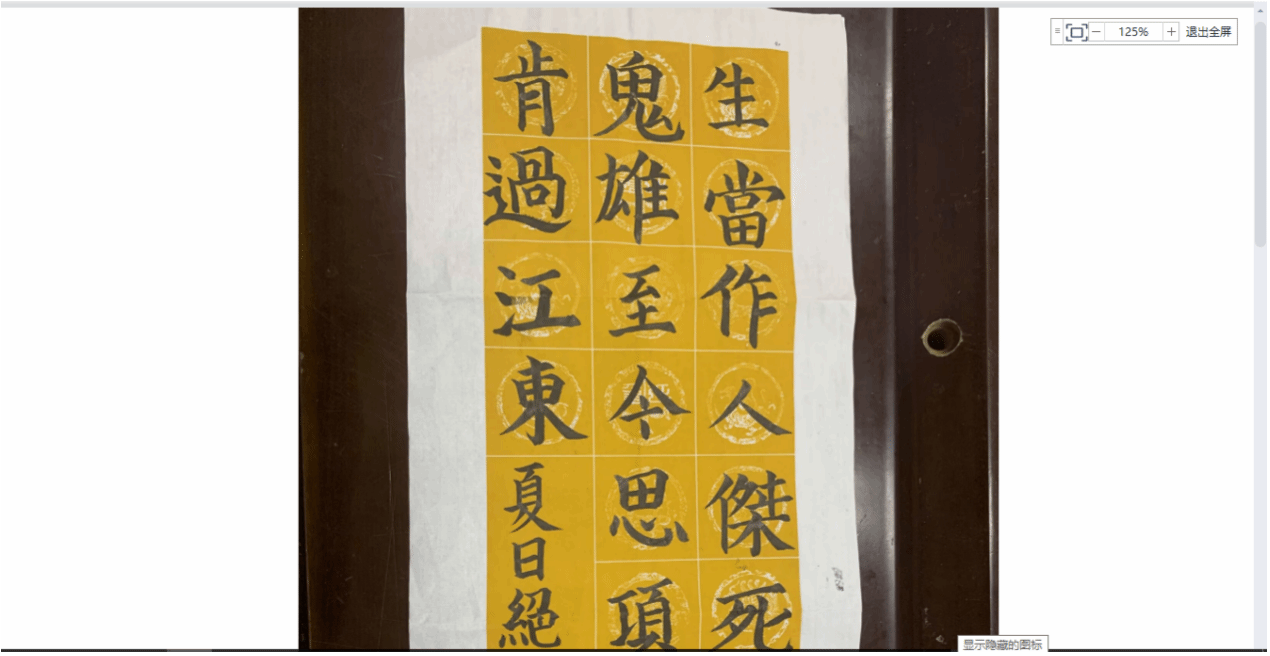 125% 退出全屏
生當作人傑死
鬼雄至今思項
肯過江東
夏日絕
显示隐藏的图标